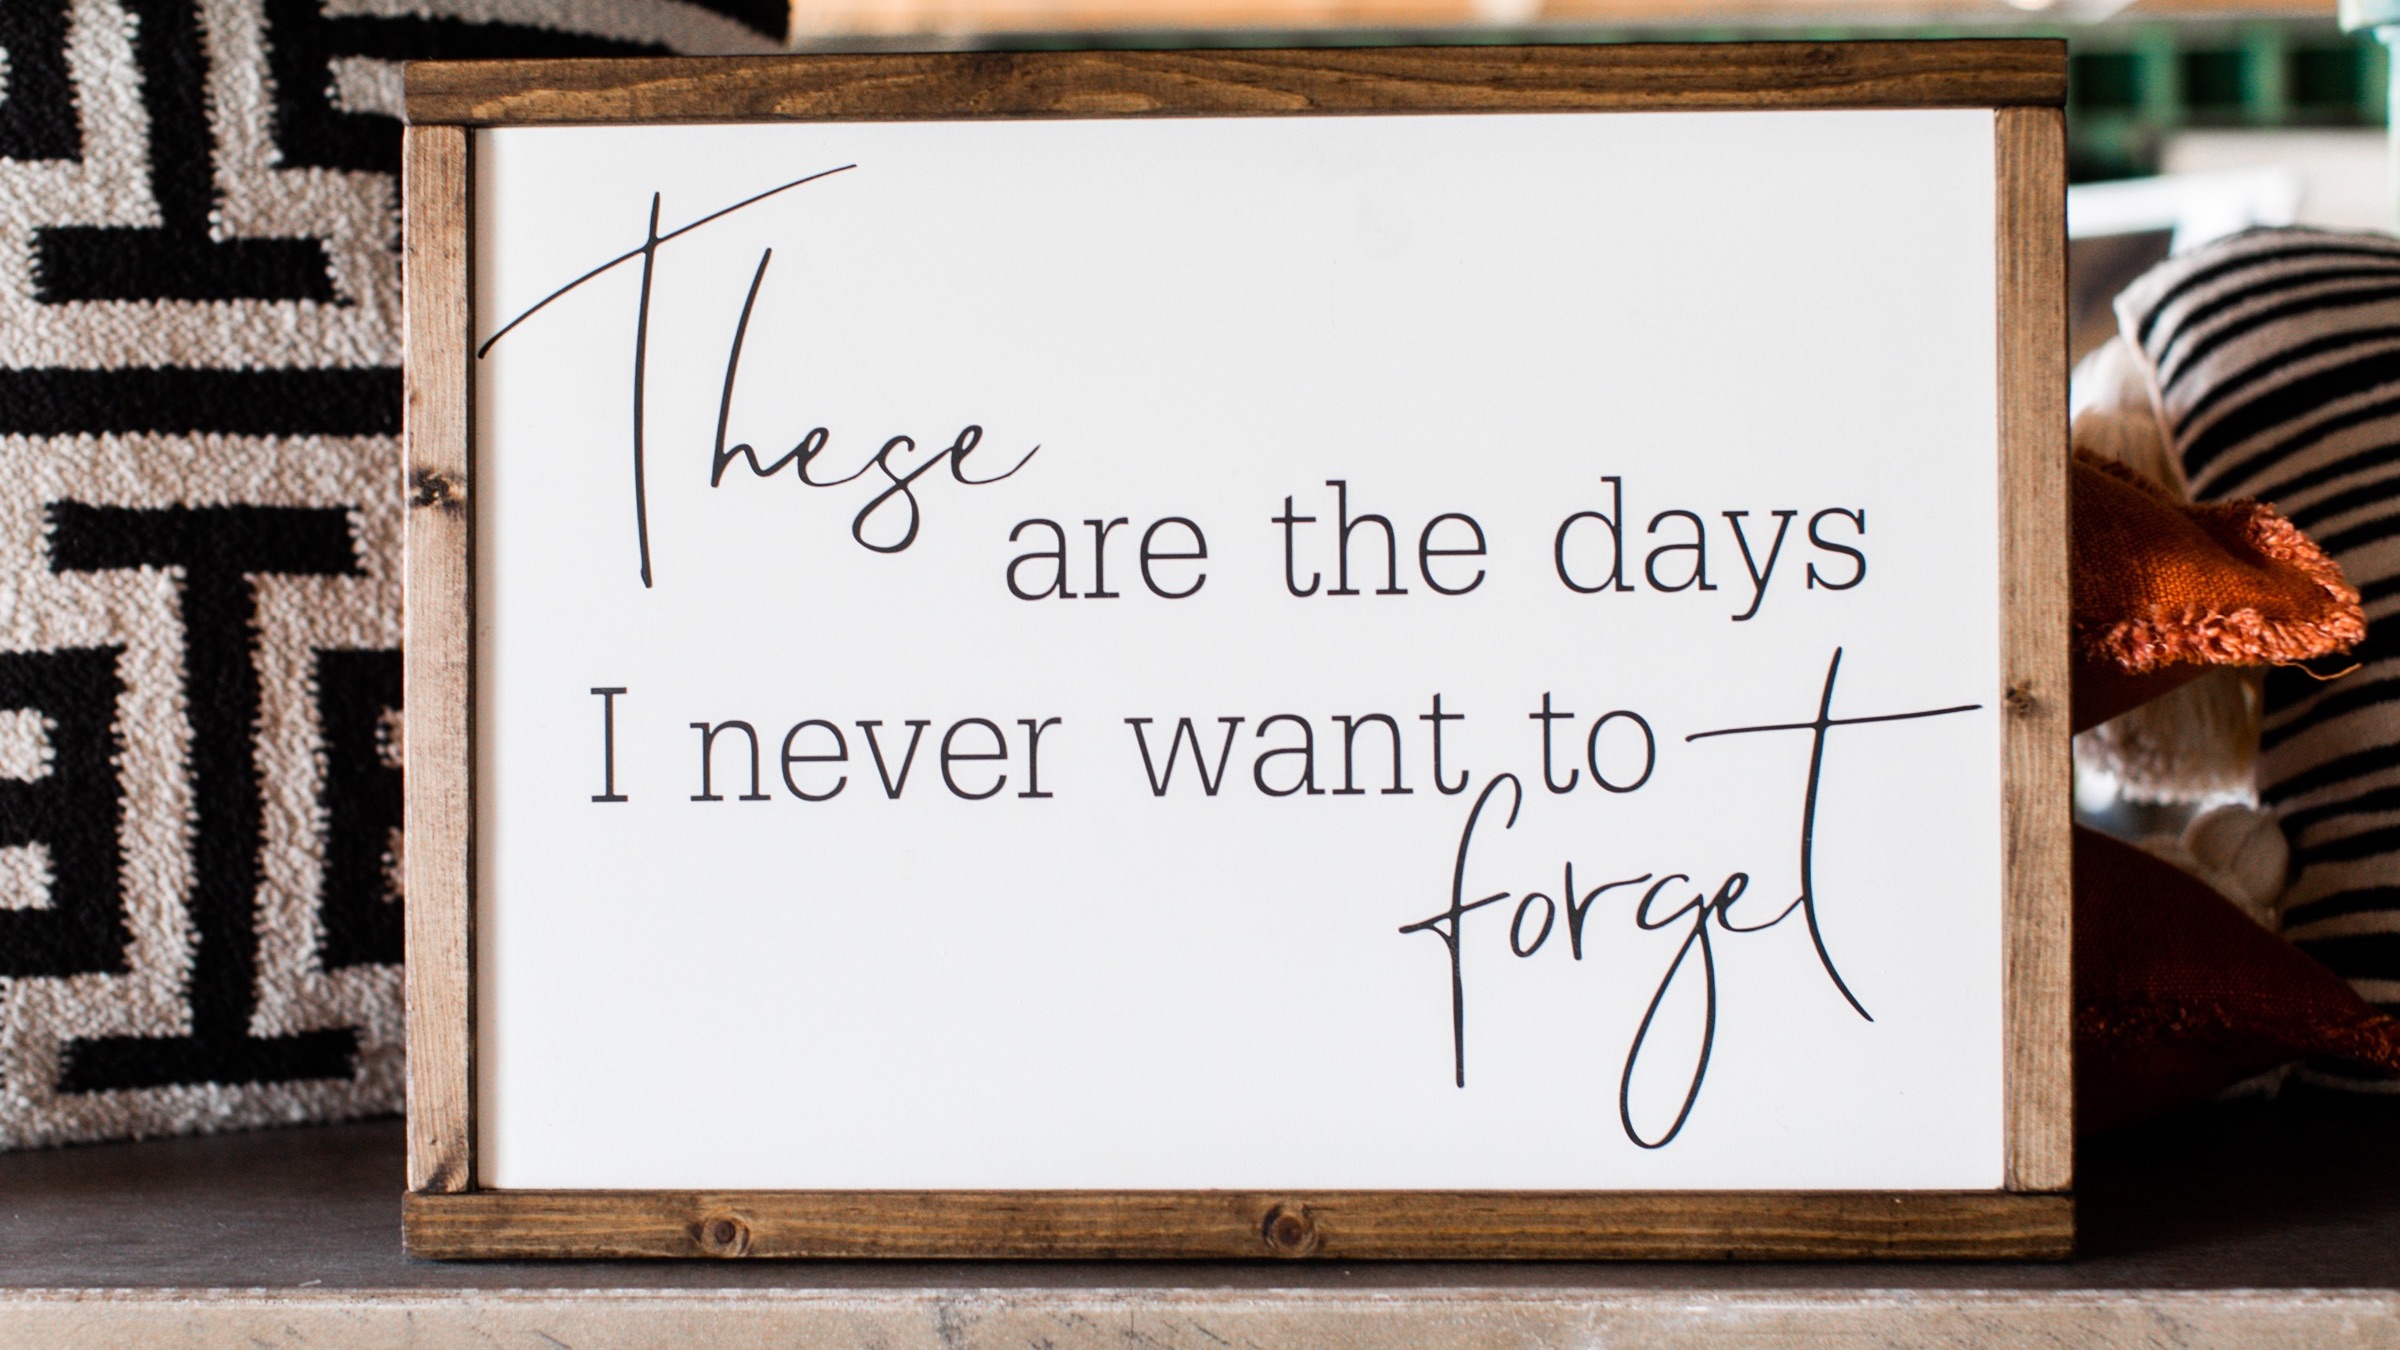 These
are the days
I never want to
forget